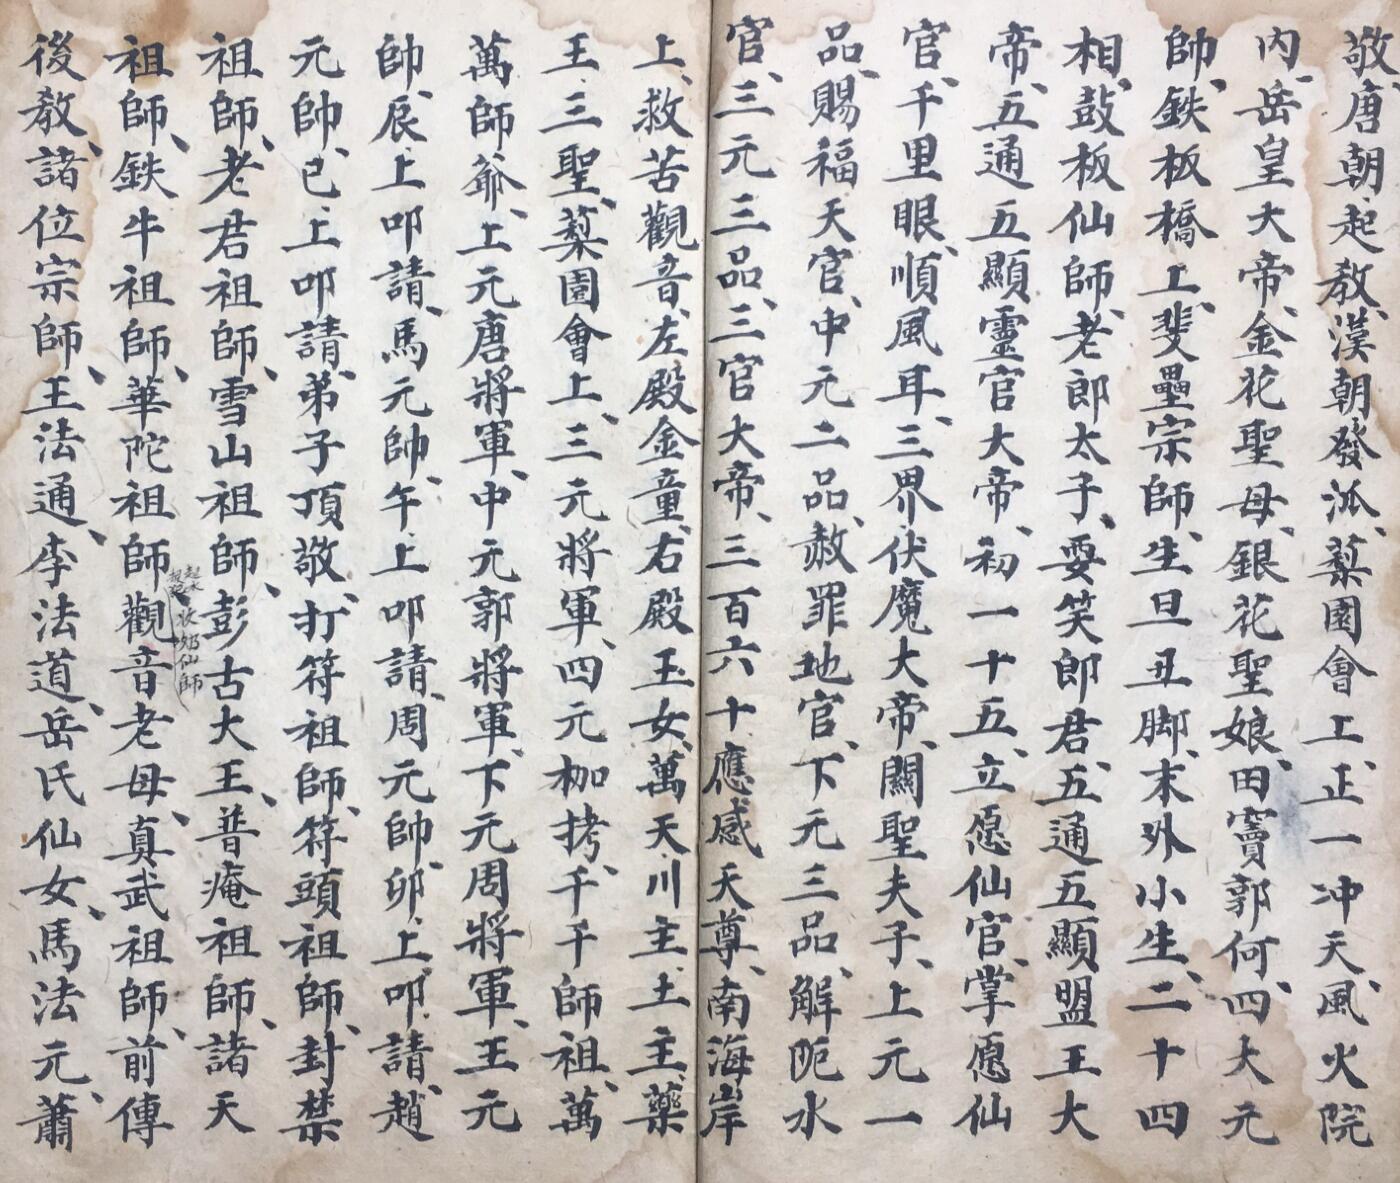 敬、唐朝、起教、漢朝發派、䔣園會上、正一冲天風火院
内、岳皇大帝、金花聖母、銀花聖娘、田竇郭何、四大元
帥、鉄板橋上、斐壘宗師、生旦丑脚、末外小生、二十四
相、鼓板仙師、老郎太子、耍笑郎君、五通五顯盟王大
帝、五通五顯靈官大帝、初一十五、立愿仙官、掌愿仙
官、千里眼、順風耳、三界伏魔大帝、關聖夫子、上元一
品、賜福天官、中元二品、赦罪地官、下元三品、解阨水
官、三元三品、三官大帝、三百六十應感天尊、南海岸
上、救苦觀音、左殿金童、右殿玉女、萬天川主、土主、藥
王、三聖、䔣園會上、三元將軍、四元枷拷、千千師祖、萬
萬師爺、上元唐將軍、中元郭將軍、下元周將軍、王元
帥、辰上叩請、馬元帥、午上叩請、周元帥、卯上叩請、趙
元帥、巳上叩請、弟子頂敬、打符祖師、符頭祖師、封禁
祖師、老君祖師、雪山祖師、彭古大王、普庵祖師、諸天
祖師、鉄牛祖師、華陀祖師、觀音老母、真武祖師、前傳
後教、諸位宗師、王法通、李法道、岳氏仙女、馬法元、蕭